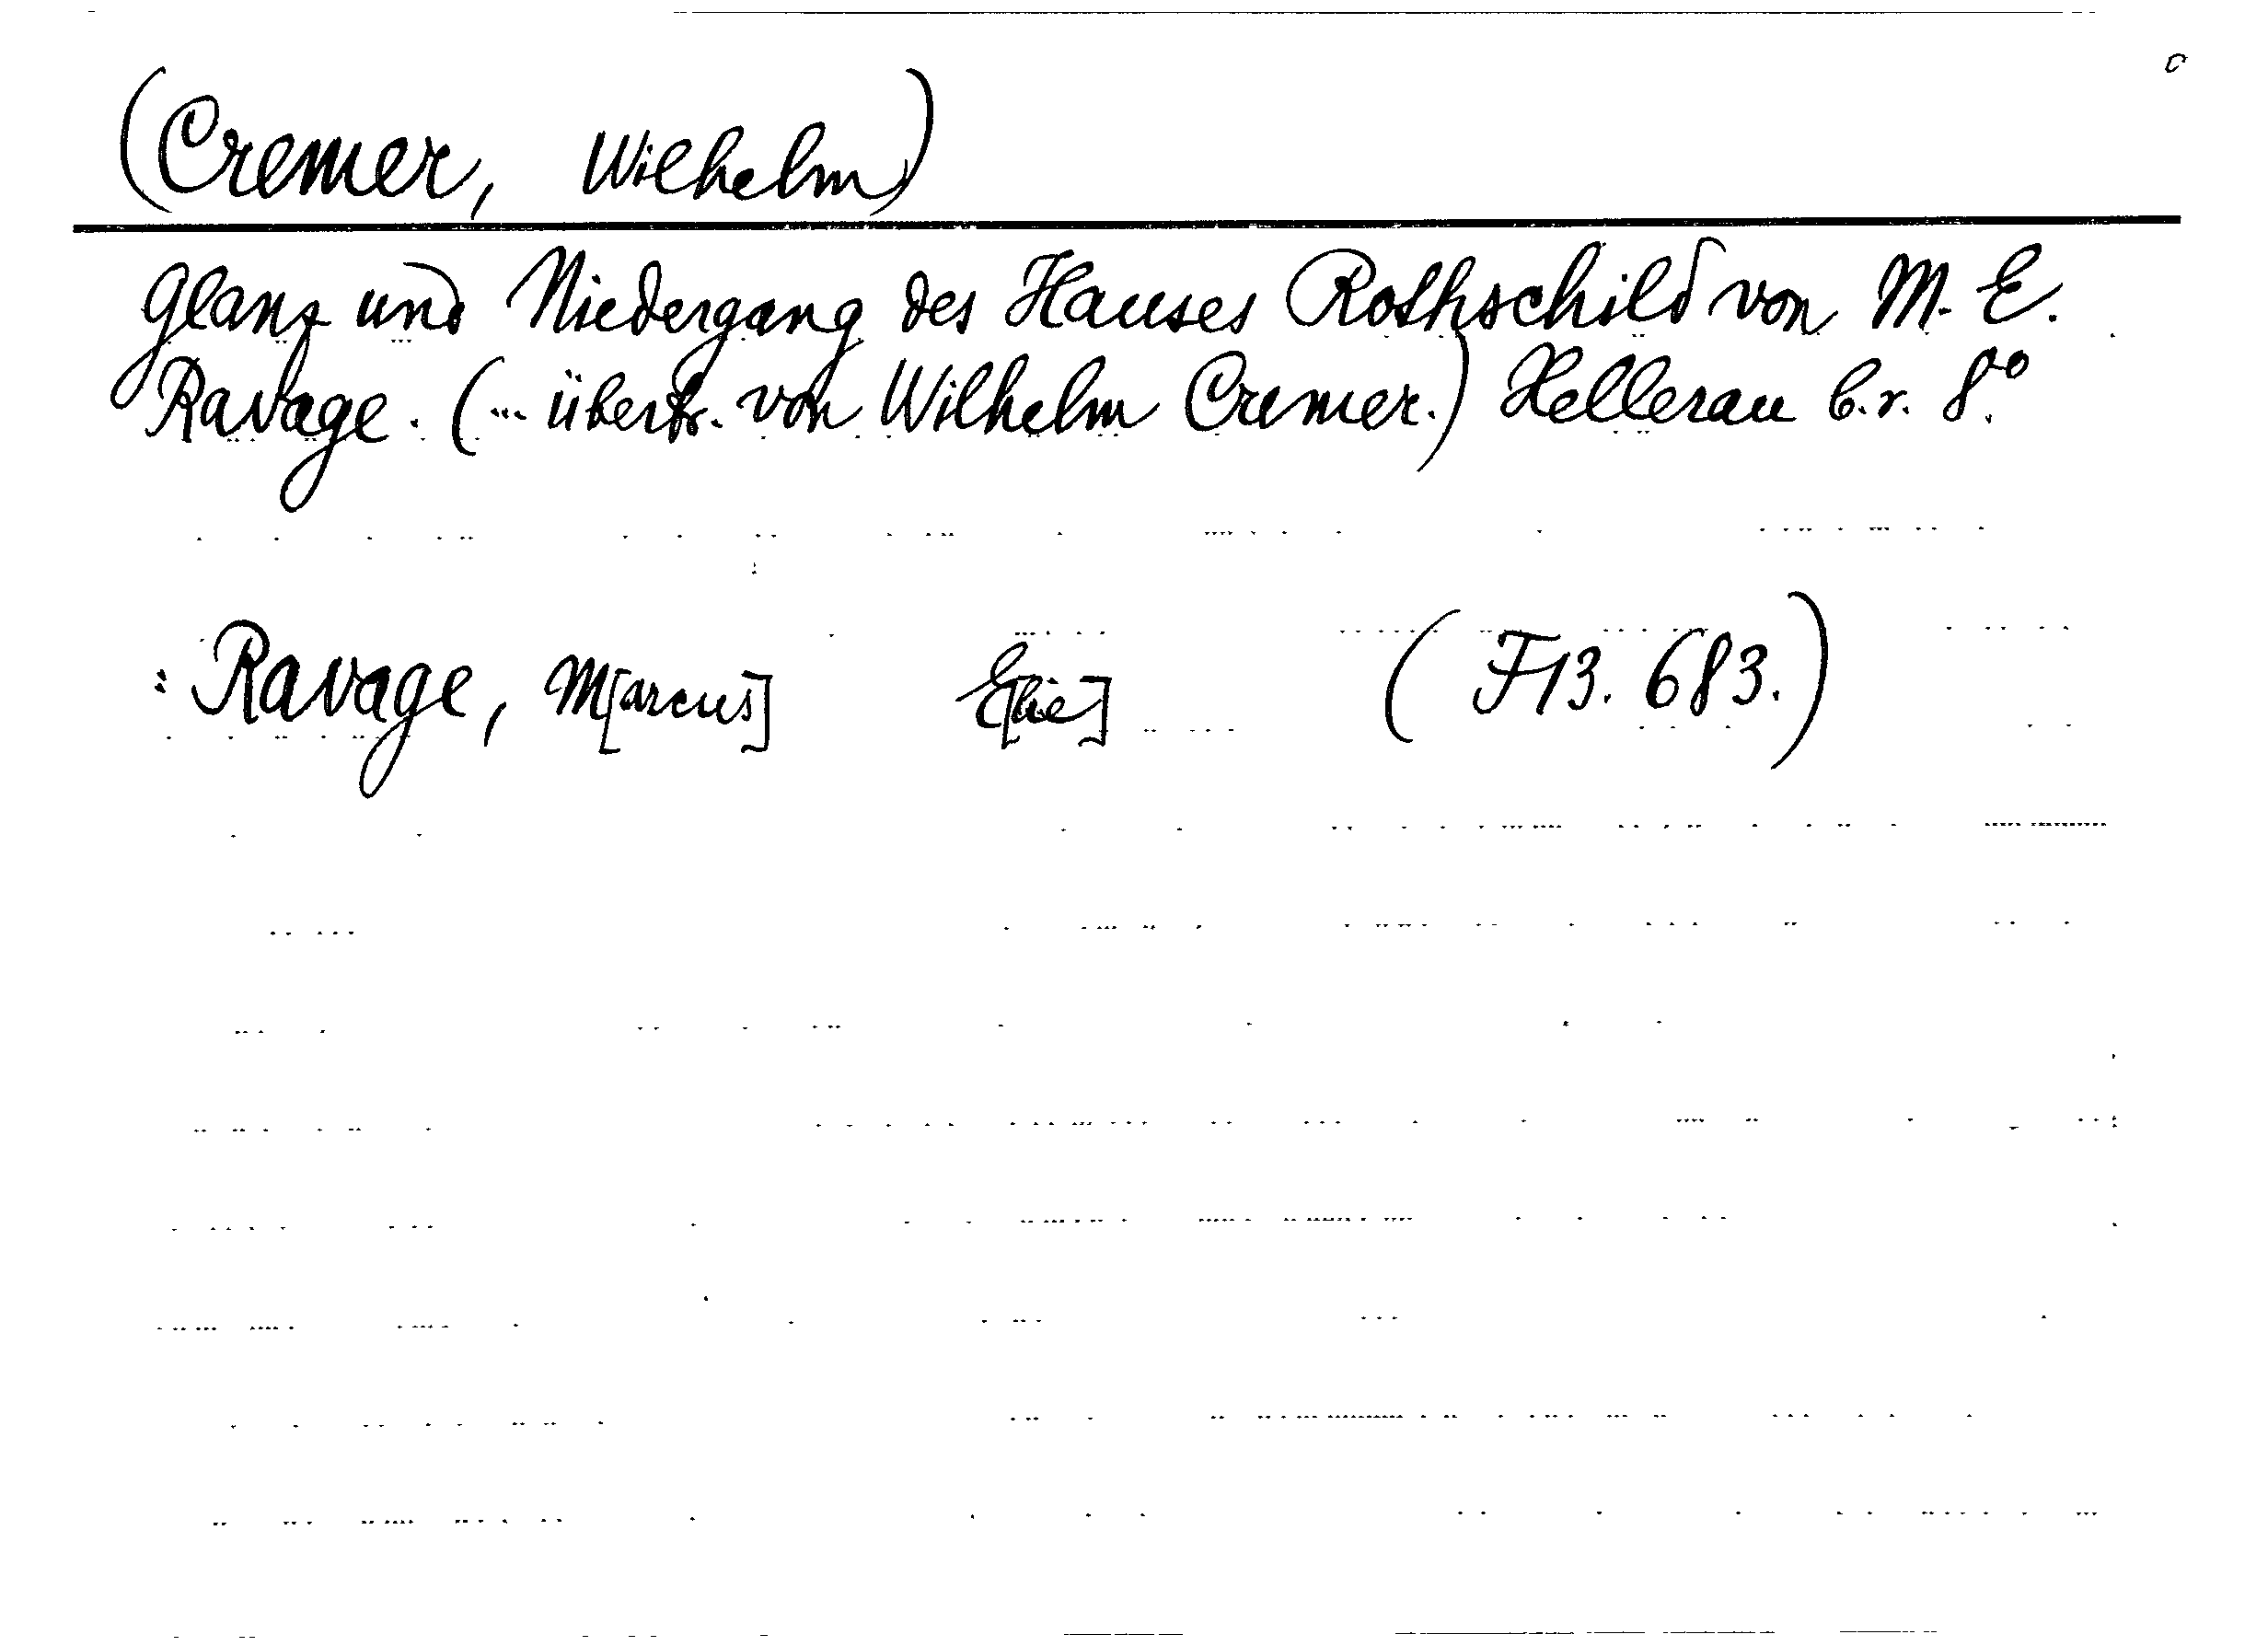 (Cremer, Wilhelm)
Glanz und Niedergang des Hauses Rothschild von M. E.
Ravage. (... übertr. von Wilhelm Cremer.) Hellerau b.r. 8°.
: Ravage, M[arcus] E[lie] (F13. 683.)